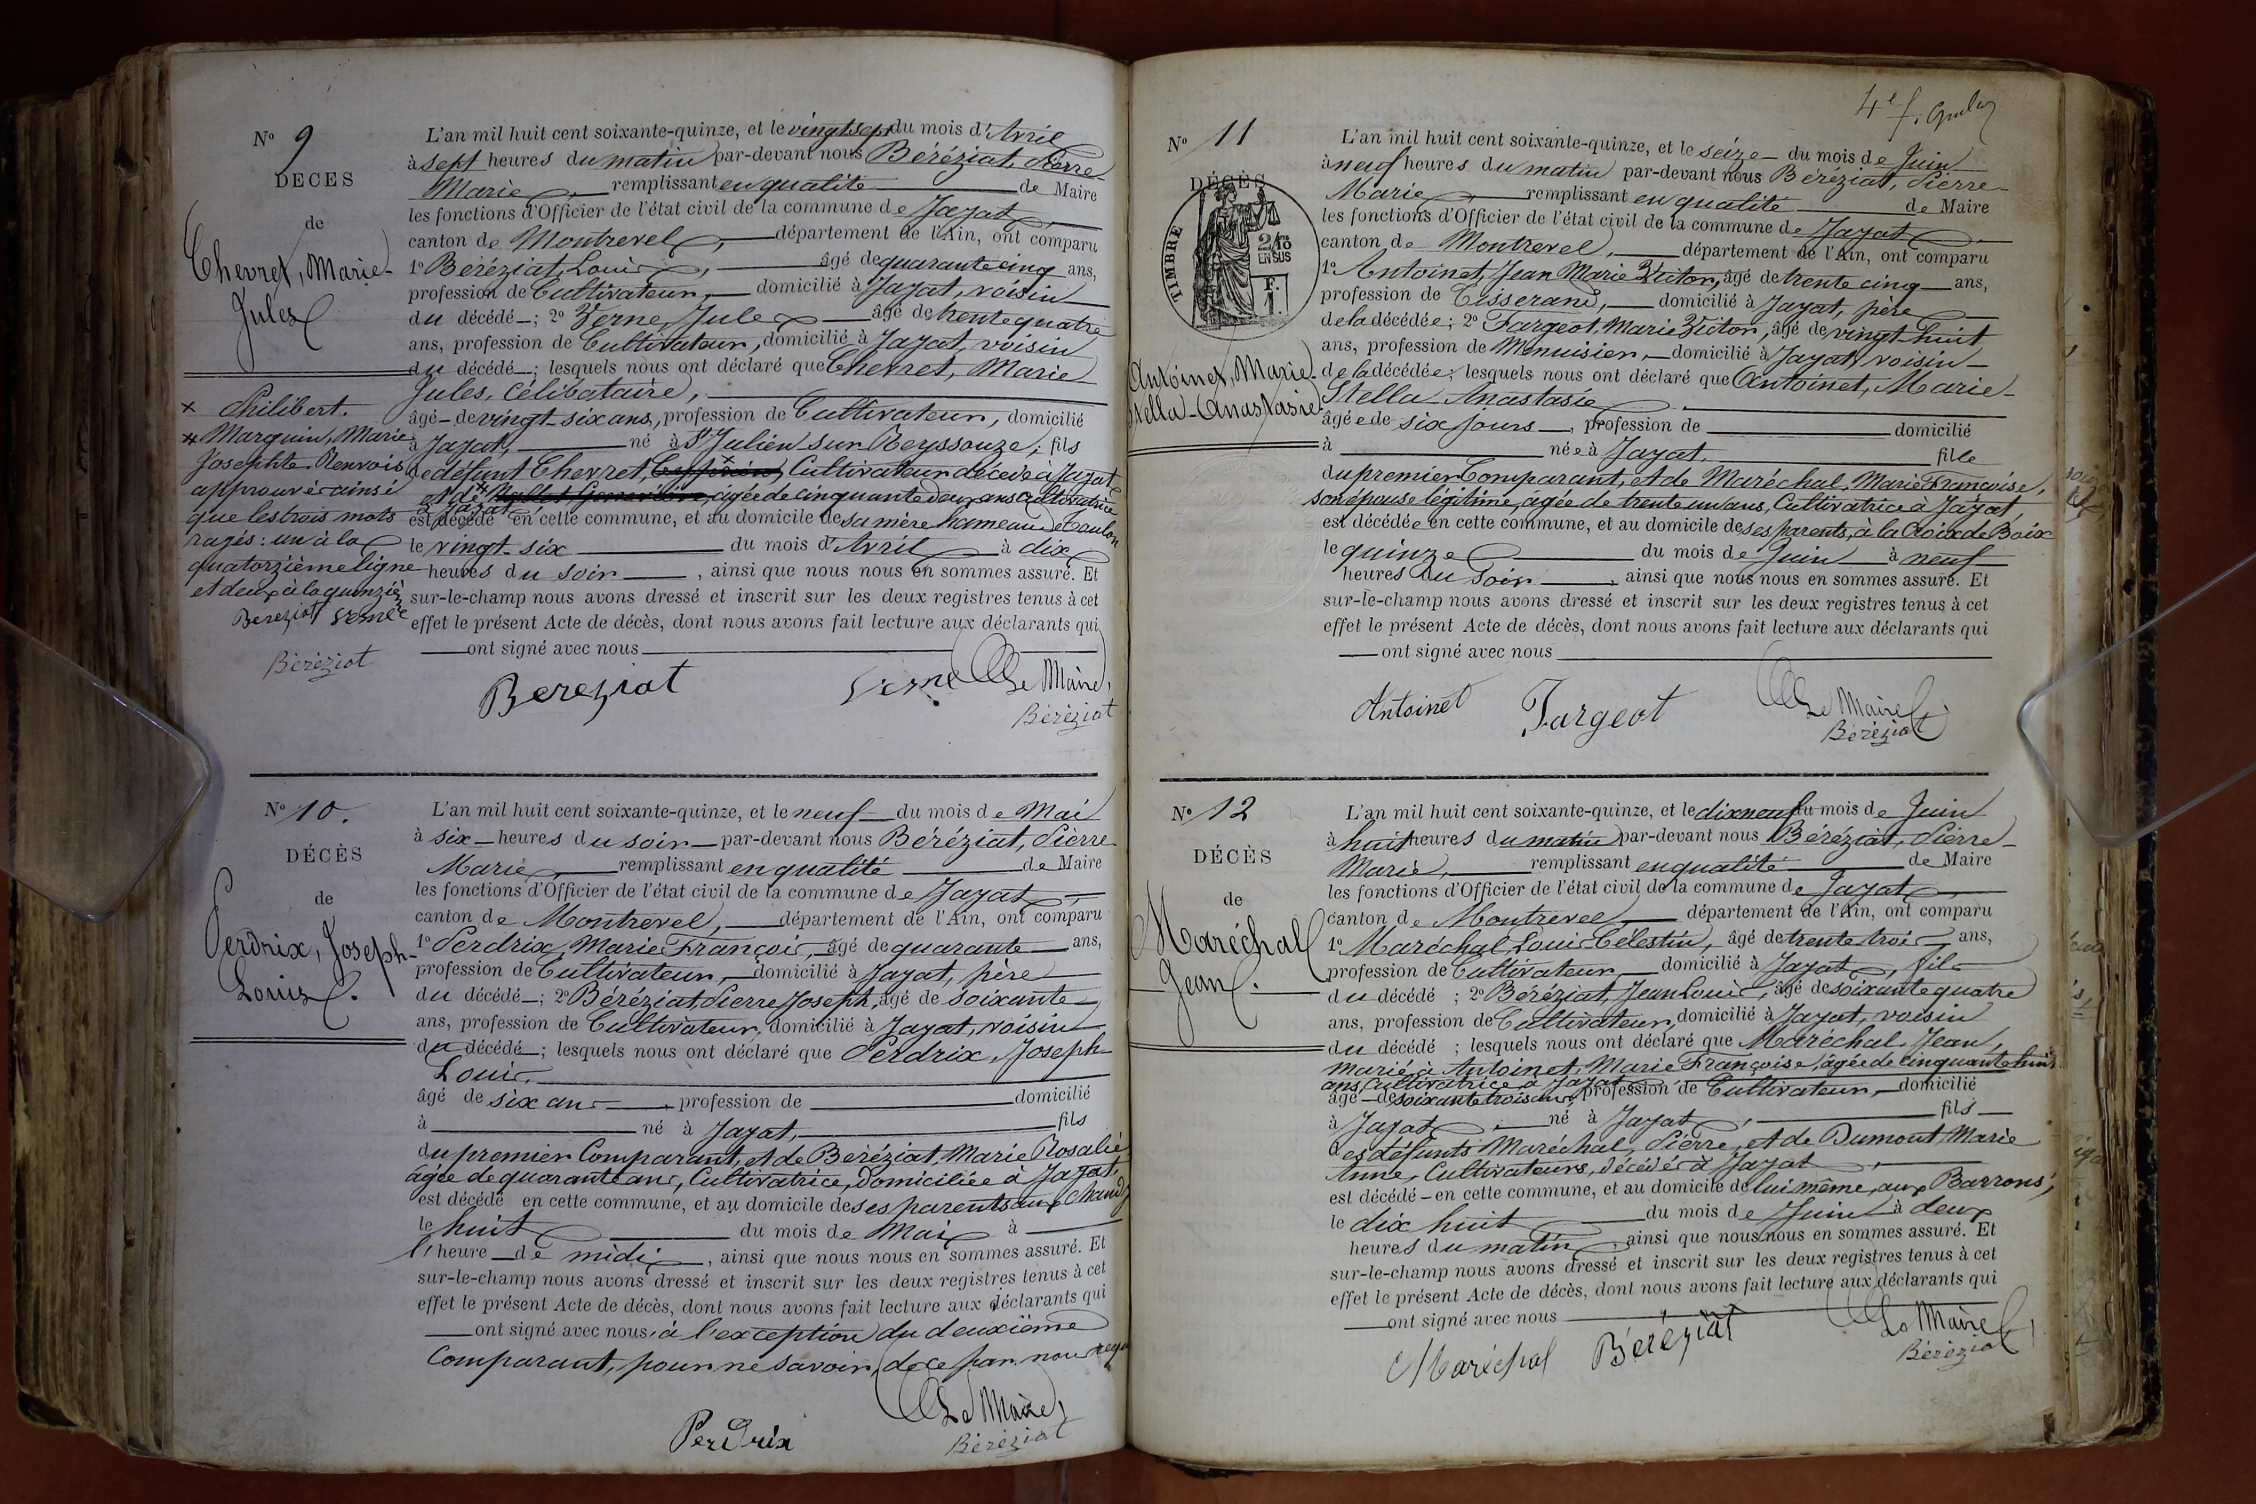 N° 9
DÉCÈS
de
Chevret, Marie-
Jules
L'an mil huit cent soixante-quinze, et le vingt sept du mois d'Avril
à sept heures du matin par-devant nous Béréziat, Pierre-
Marie, remplissant en qualité de Maire
les fonctions d'Officier de l'état civil de la commune de Jayat,
canton de Montrevel, département de l'Ain, ont comparu
1° Béréziat, Louis, âgé de quarante cinq ans,
profession de Cultivateur, domicilié à Jayat, voisin
du décédé ; 2° Verne, Jules âgé de trente quatre
ans, profession de Cultivateur, domicilié à Jayat, voisin
du décédé ; lesquels nous ont déclaré que Chevret, Marie
Jules, célibataire,
âgé de vingt-six ans, profession de Cultivateur, domicilié
à Jayat, né à St Julien sur Reyssouze, fils
de défunt Chevret, Cultivateur décédé à Jayat
et de âgée de cinquante deux ans Cultivatrice
à Jayat
est décédé en cette commune, et au domicile de sa mère hameau de Toulon
le vingt-six du mois d'Avril à dix
heures du soir, ainsi que nous nous en sommes assuré. Et
sur-le-champ nous avons dressé et inscrit sur les deux registres tenus à cet
effet le présent Acte de décès, dont nous avons fait lecture aux déclarants qui
ont signé avec nous
x Philibert.
* Marguin, Marie
Josephte. Renvois
approuvés ainsi
que les trois mots
rayés : un à la
quatorzième ligne
et deux à la quinzième
Bereziat Verne
Béréziat
Bereziat Verne Le Maire,
Béréziat
N° 10.
DÉCÈS
de
Perdrix, Joseph-
Louis.
L'an mil huit cent soixante-quinze, et le neuf du mois de Mai
à six heures du soir par-devant nous Béréziat, Pierre
Marie, remplissant en qualité de Maire
les fonctions d'Officier de l'état civil de la commune de Jayat,
canton de Montrevel, département de l'Ain, ont comparu
1° Perdrix, Marie François, âgé de quarante ans,
profession de Cultivateur, domicilié à Jayat, père
du décédé ; 2° Béréziat, Pierre Joseph, âgé de soixante
ans, profession de Cultivateur, domicilié à Jayat, voisin
du décédé ; lesquels nous ont déclaré que Perdrix, Joseph
Louis,
âgé de six ans, profession de domicilié
à né à Jayat, fils
du premier Comparant, et de Béréziat, Marie Rosalie,
âgée de quarante ans, Cultivatrice, domiciliée à Jayat,
est décédé en cette commune, et au domicile de ses parents aux Chands
le huit du mois de Mai à
l'heure de midi, ainsi que nous nous en sommes assuré. Et
sur-le-champ nous avons dressé et inscrit sur les deux registres tenus à cet
effet le présent Acte de décès, dont nous avons fait lecture aux déclarants qui
ont signé avec nous, à l'exception du deuxième
Comparant, pour ne savoir, de ce par nous requis
Le Maire,
Perdrix Béréziat
4e f.
N° 11
DÉCÈS
TIMBRE
2/10 EN SUS
F.
Antoinet, Marie-
Stella-Anastasie
L'an mil huit cent soixante-quinze, et le seize du mois de Juin
à neuf heures du matin par-devant nous Béréziat, Pierre-
Marie, remplissant en qualité de Maire
les fonctions d'Officier de l'état civil de la commune de Jayat,
canton de Montrevel, département de l'Ain, ont comparu
1° Antoinet, Jean Marie Victor, âgé de trente cinq ans,
profession de Tisserand, domicilié à Jayat, père
de la décédée ; 2° Fargeot, Marie Victor, âgé de vingt-huit
ans, profession de Menuisier, domicilié à Jayat, voisin
de la décédée, lesquels nous ont déclaré que Antoinet, Marie-
Stella Anastasie
âgée de six jours, profession de domicilié
à née à Jayat, fille
du premier Comparant, et de Maréchal, Marie Françoise,
son épouse légitime, âgée de trente un ans, Cultivatrice à Jayat,
est décédée en cette commune, et au domicile de ses parents, à la Croix de Boix
le quinze du mois de Juin à neuf
heures du soir, ainsi que nous nous en sommes assuré. Et
sur-le-champ nous avons dressé et inscrit sur les deux registres tenus à cet
effet le présent Acte de décès, dont nous avons fait lecture aux déclarants qui
ont signé avec nous
Antoinet Fargeot Le Maire
Béréziat
N° 12
DÉCÈS
de
Maréchal
Jean.
L'an mil huit cent soixante-quinze, et le dix neuf du mois de Juin
à huit heures du matin par-devant nous Béréziat, Pierre-
Marie, remplissant en qualité de Maire
les fonctions d'Officier de l'état civil de la commune de Jayat,
canton de Montrevel, département de l'Ain, ont comparu
1° Maréchal, Louis Célestin, âgé de trente trois ans,
profession de Cultivateur domicilié à Jayat, fils
du décédé ; 2° Béréziat, Jean Louis, âgé de soixante quatre
ans, profession de Cultivateur, domicilié à Jayat, voisin
du décédé ; lesquels nous ont déclaré que Maréchal, Jean,
marié à Antoinet, Marie Françoise, âgée de cinquante huit
ans, Cultivatrice à Jayat
âgé de soixante trois ans, profession de Cultivateur, domicilié
à Jayat, né à Jayat, fils
des défunts Maréchal, Pierre, et de Dumont Marie
Anne, Cultivateurs, décédés à Jayat,
est décédé en cette commune, et au domicile de lui même, aux Barrons,
le dix huit du mois de Juin à deux
heures du matin, ainsi que nous nous en sommes assuré. Et
sur-le-champ nous avons dressé et inscrit sur les deux registres tenus à cet
effet le présent Acte de décès, dont nous avons fait lecture aux déclarants qui
ont signé avec nous
Maréchal Béréziat Le Maire,
Béréziat